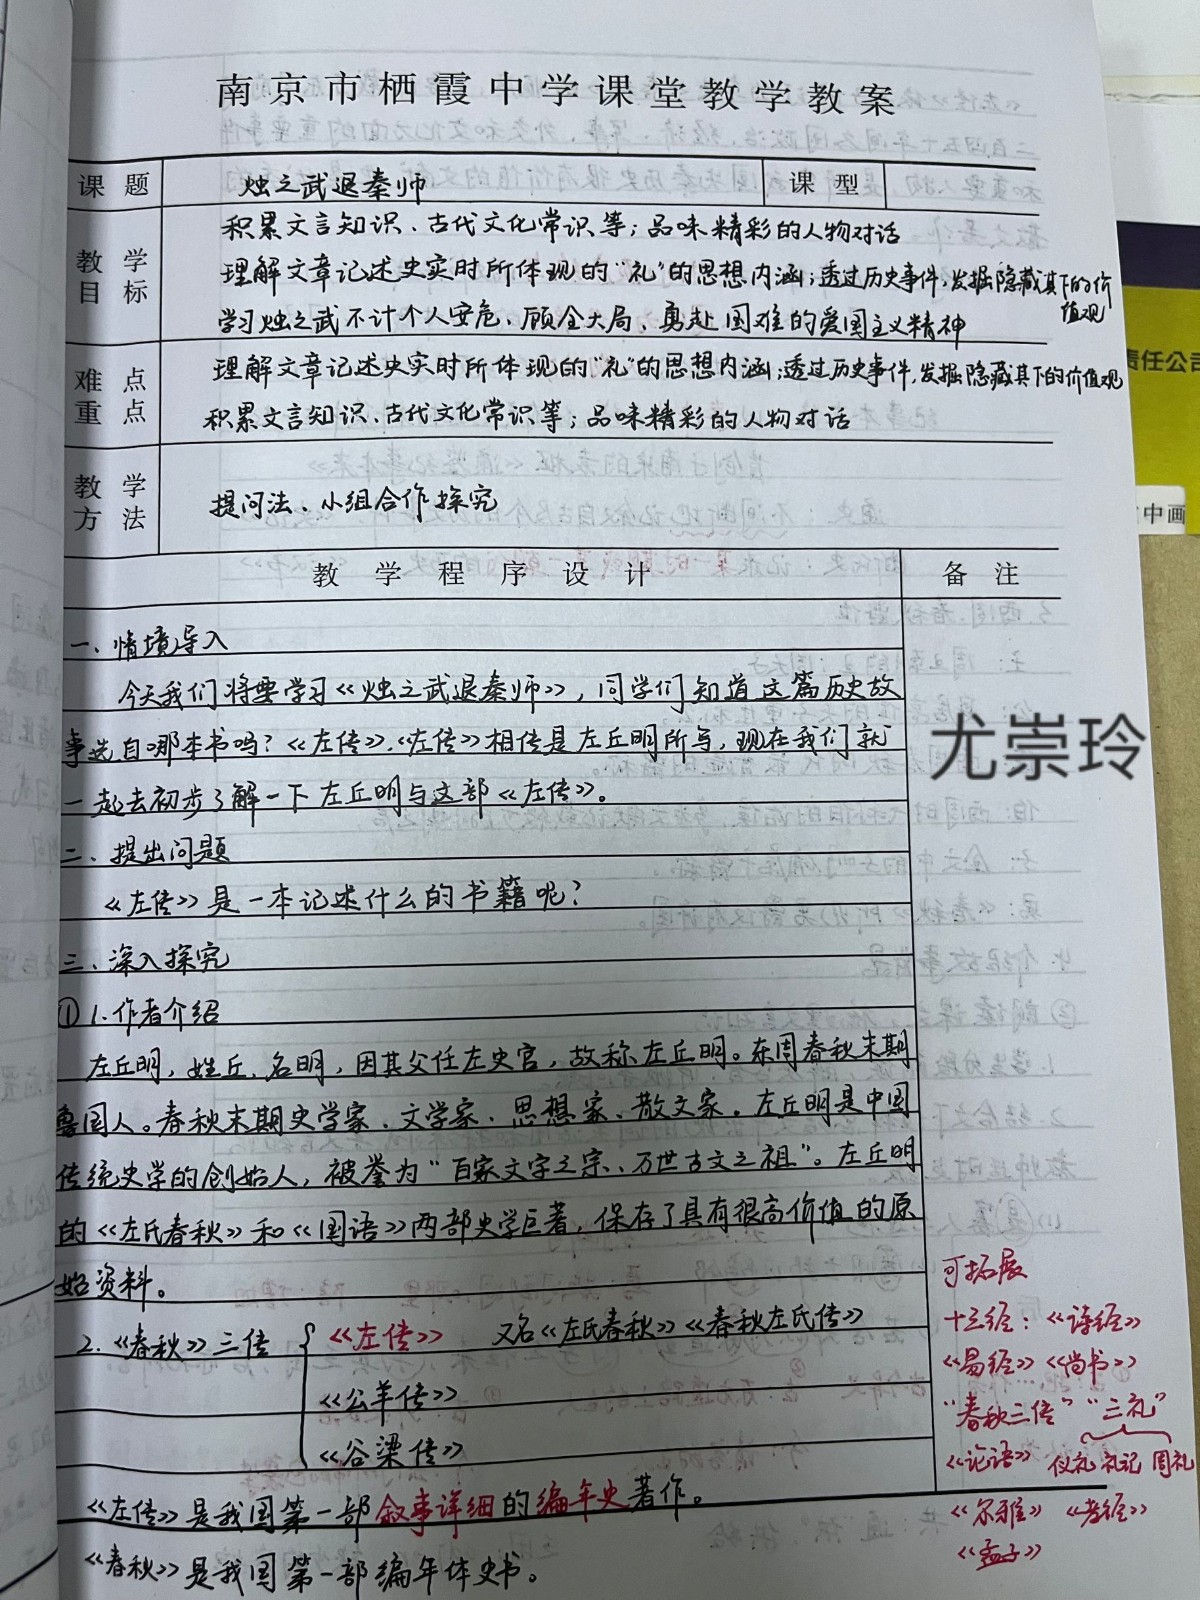 南京市栖霞中学课堂教学教案
课题 烛之武退秦师 课型
教学目标
积累文言知识、古代文化常识等；品味精彩的人物对话
理解文章记述史实时所体现的“礼”的思想内涵；透过历史事件，发掘隐藏其下的价值观
学习烛之武不计个人安危、顾全大局、勇赴国难的爱国主义精神
难点重点
理解文章记述史实时所体现的“礼”的思想内涵；透过历史事件，发掘隐藏其下的价值观
积累文言知识、古代文化常识等；品味精彩的人物对话
教学方法
提问法、小组合作探究
教学程序设计 备注
一、情境导入
今天我们将要学习《烛之武退秦师》，同学们知道这篇历史故
事选自哪本书吗？《左传》.《左传》相传是左丘明所写，现在我们就
一起去初步了解一下左丘明与这部《左传》。
二、提出问题
《左传》是一本记述什么的书籍呢？
三、深入探究
① 1.作者介绍
左丘明，姓丘、名明，因其父任左史官，故称左丘明。东周春秋末期
鲁国人。春秋末期史学家、文学家、思想家、散文家。左丘明是中国
传统史学的创始人，被誉为“百家文字之宗、万世古文之祖”。左丘明
的《左氏春秋》和《国语》两部史学巨著，保存了具有很高价值的原
始资料。
2.《春秋》三传 《左传》 又名《左氏春秋》《春秋左氏传》
《公羊传》
《谷梁传》
《左传》是我国第一部叙事详细的编年史著作。
《春秋》是我国第一部编年体史书。
可拓展
十三经：《诗经》
《易经》《尚书》
“春秋三传”“三礼”
《论语》 仪礼 礼记 周礼
《尔雅》 《孝经》
《孟子》
尤崇玲
责任公司
中画